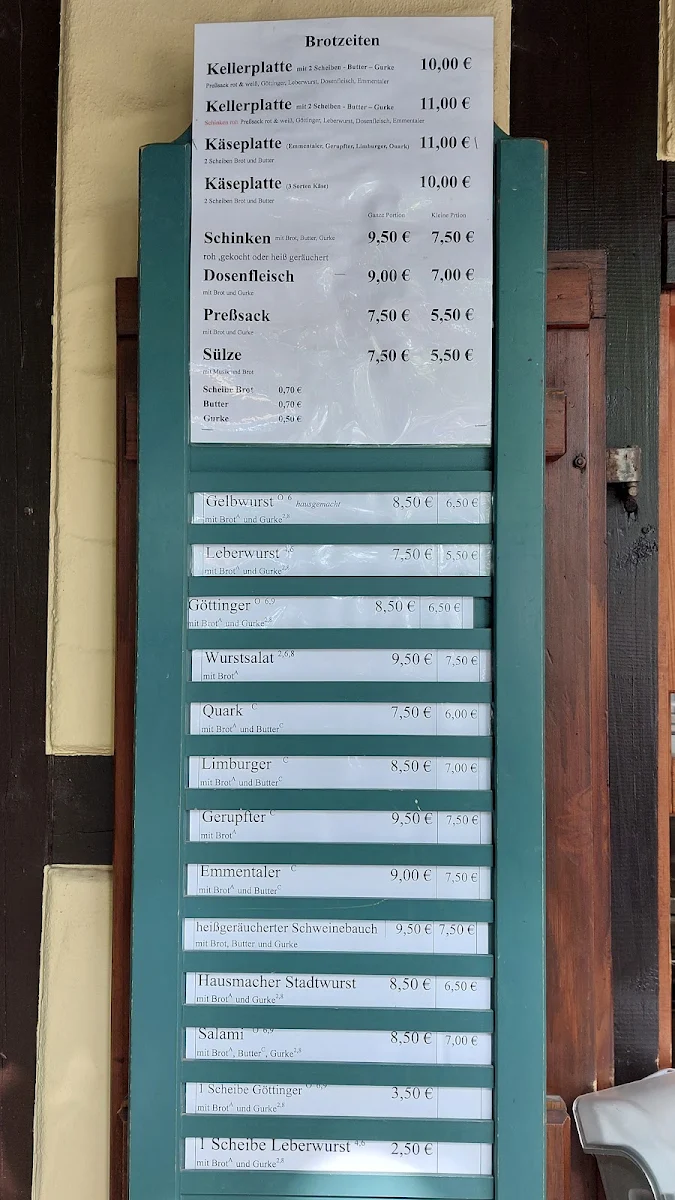 Brotzeiten
Kellerplatte mit 2 Scheiben - Butter – Gurke 10,00 €
Preßsack rot & weiß, Göttinger, Leberwurst, Dosenfleisch, Emmentaler
Kellerplatte mit 2 Scheiben - Butter – Gurke 11,00 €
Schinken mit Preßsack rot & weiß, Göttinger, Leberwurst, Dosenfleisch, Emmentaler
Käseplatte (Emmentaler, Gerupfter, Limburger, Quark) 11,00 €
2 Scheiben Brot und Butter
Käseplatte (3 Sorten Käse) 10,00 €
2 Scheiben Brot und Butter
Ganze Portion Kleine Prtion
Schinken mit Brot, Butter, Gurke 9,50 € 7,50 €
roh ,gekocht oder heiß geräuchert
Dosenfleisch 9,00 € 7,00 €
mit Brot und Gurke
Preßsack 7,50 € 5,50 €
mit Brot und Gurke
Sülze 7,50 € 5,50 €
mit Musik und Brot
Scheibe Brot 0,70 €
Butter 0,70 €
Gurke 0,50 €
Gelbwurst O ,6 hausgemacht 8,50 € 6,50 €
mit Brot A und Gurke 2,8
Leberwurst 4,6 7,50 € 5,50 €
mit Brot A und Gurke 2,8
Göttinger O 6,9 8,50 € 6,50 €
mit Brot A und Gurke 2,8
Wurstsalat 2,6,8 9,50 € 7,50 €
mit Brot A
Quark C 7,50 € 6,00 €
mit Brot A und Butter C
Limburger C 8,50 € 7,00 €
mit Brot A und Butter C
Gerupfter C 9,50 € 7,50 €
mit Brot A
Emmentaler C 9,00 € 7,50 €
mit Brot A und Butter C
heißgeräucherter Schweinebauch 9,50 € 7,50 €
mit Brot, Butter und Gurke
Hausmacher Stadtwurst 8,50 € 6,50 €
mit Brot A und Gurke 2,8
Salami O 6,9 8,50 € 7,00 €
mit Brot A, Butter C, Gurke 2,8
1 Scheibe Göttinger O 6,9 3,50 €
mit Brot A und Gurke 2,8
1 Scheibe Leberwurst 4,6 2,50 €
mit Brot A und Gurke 2,8